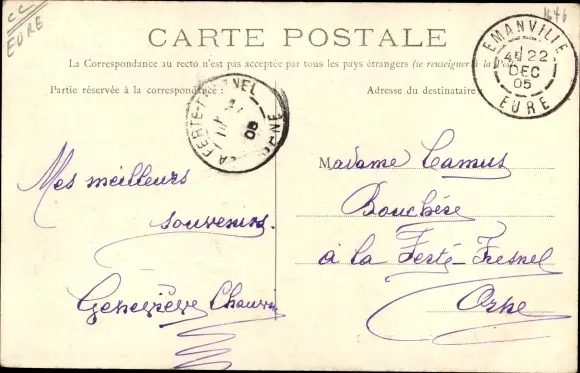 CC
EURE
1646
CARTE POSTALE
La Correspondance au recto n'est pas acceptée par tous les pays étrangers (se renseigner à la Poste)
Partie réservée à la correspondance :
Adresse du destinataire
EMANVILLE
22
DEC
05
EURE
LA FERTE-FRESNEL
05
ORNE
Mes meilleurs
souvenirs.
Geneviève Chauvin
Madame Camus
Bouchère
à la Ferté-Fresnel
Orne